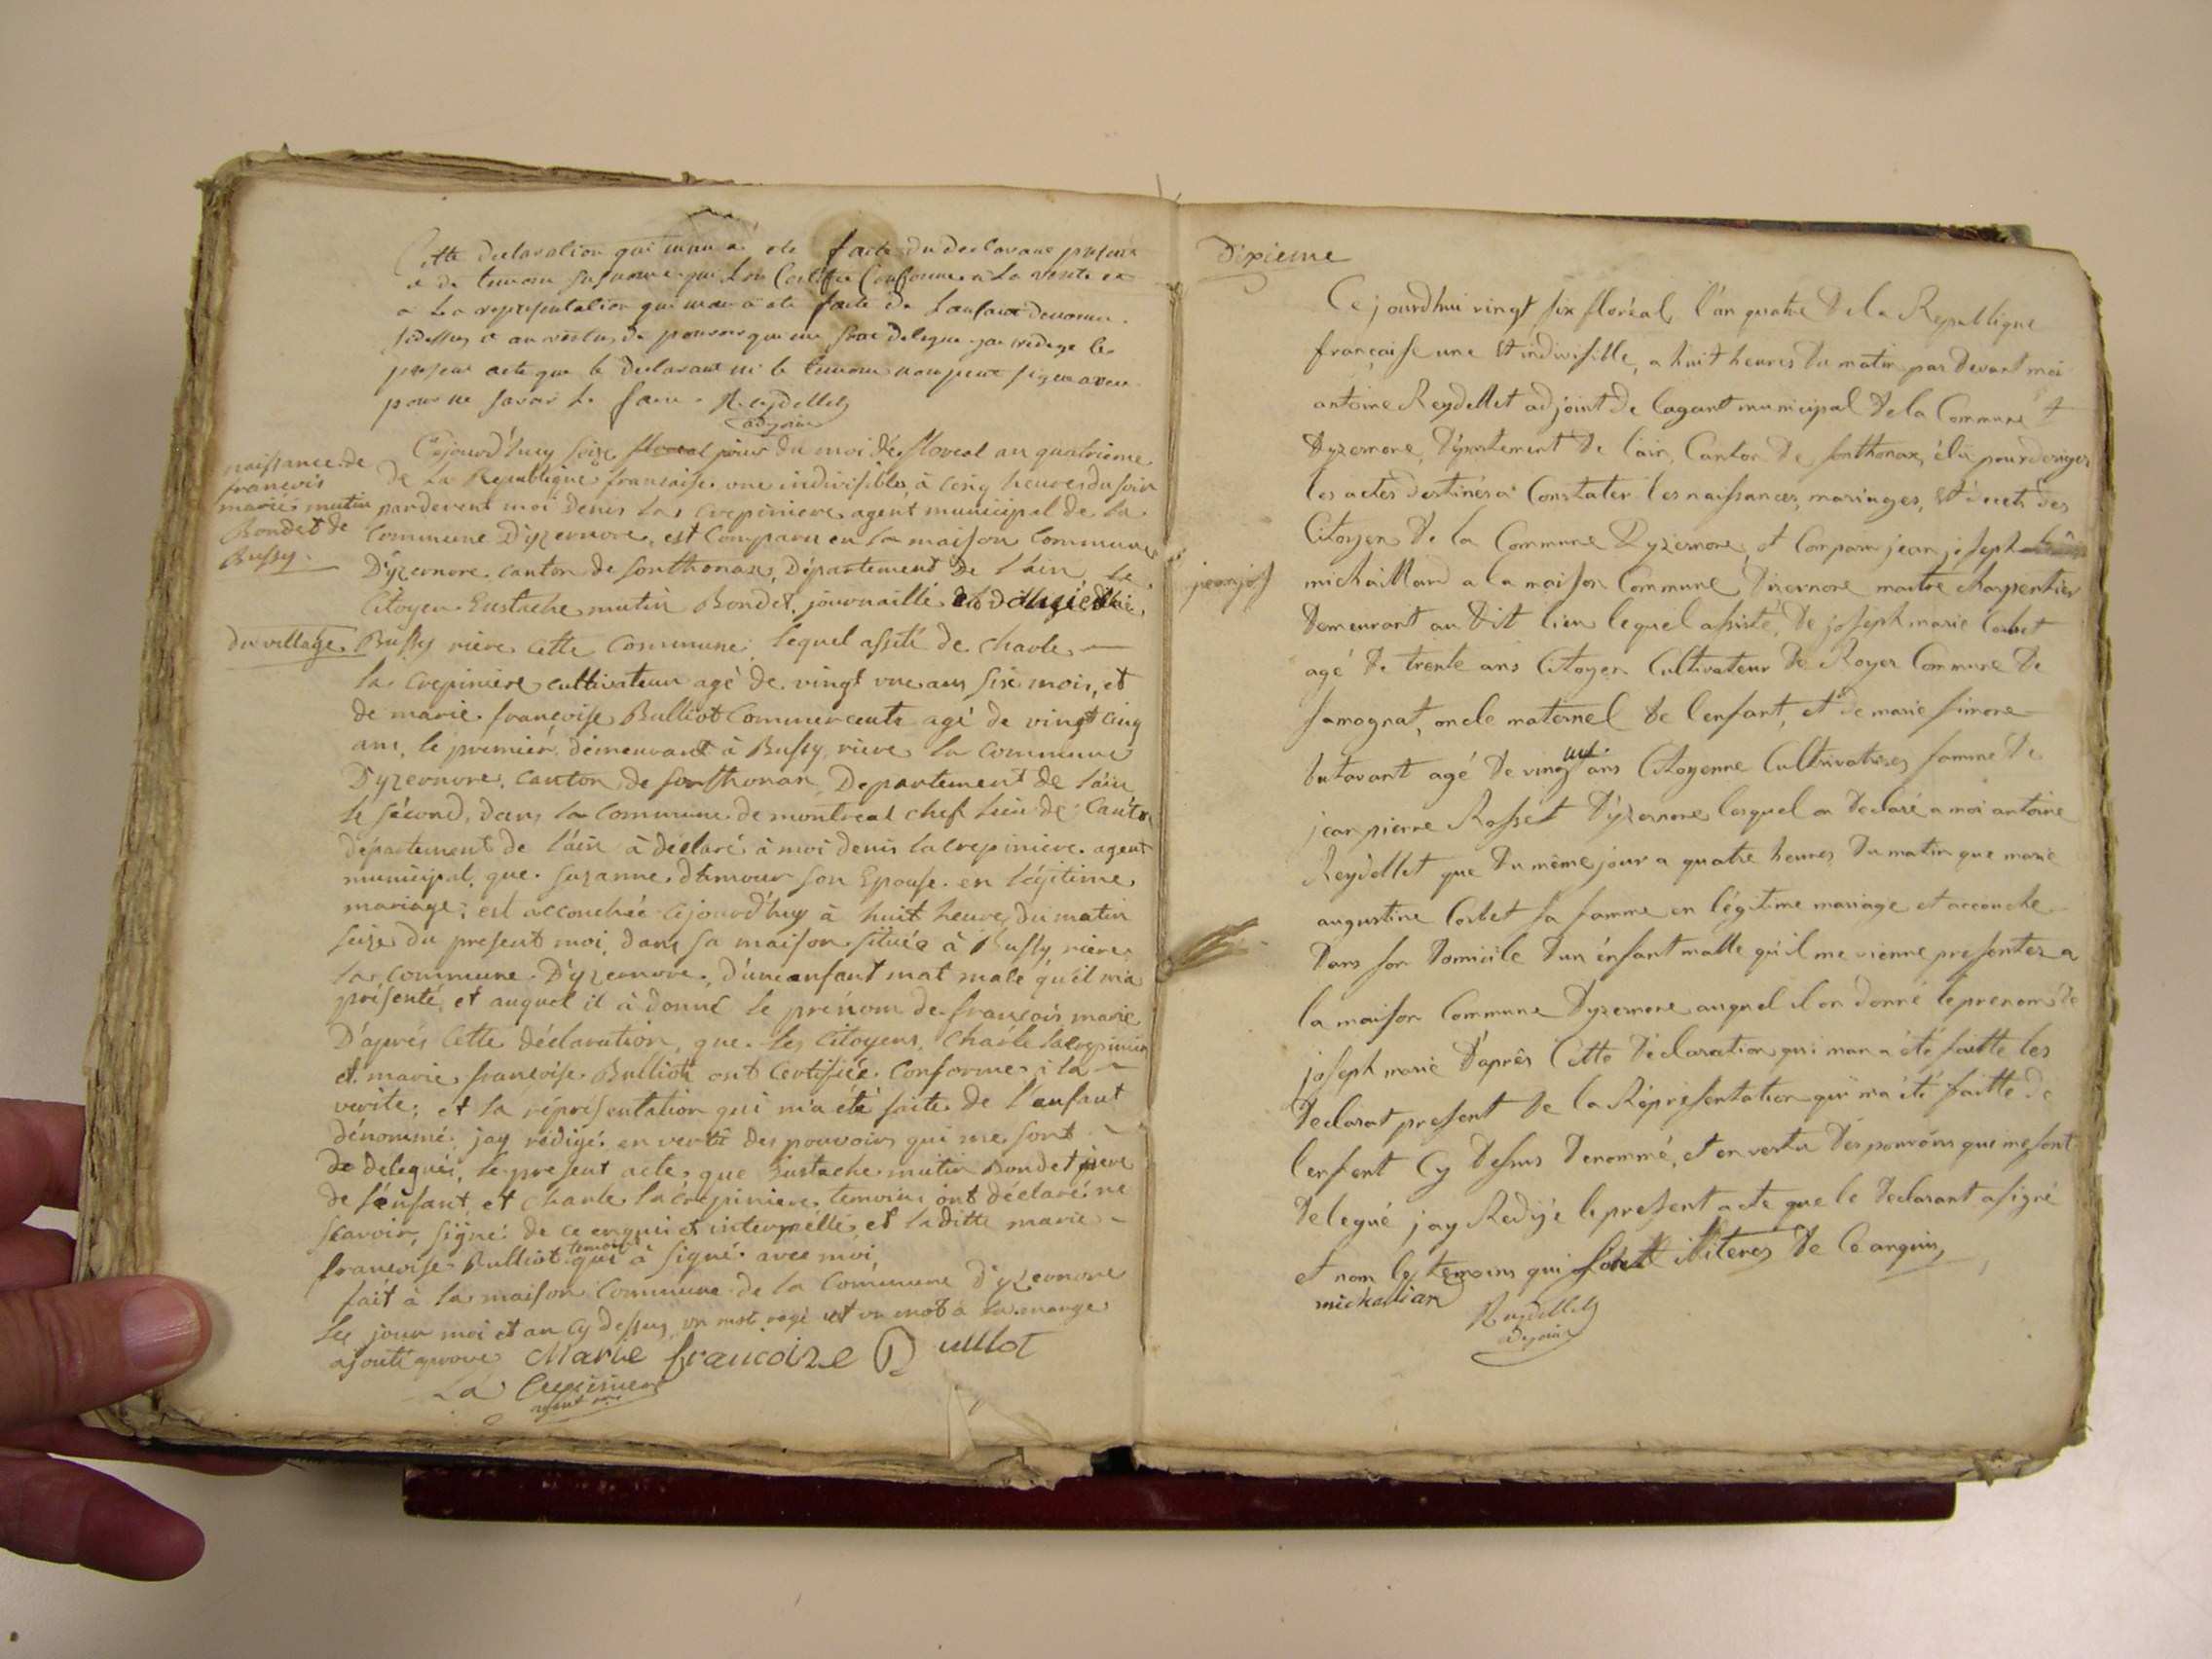 Cette declaration qui mau a ete faite du declarant present
et de temoin susnomé qui lon Certifie Conforme a La verite et
a La representation qui mau a ete faite de Lanfant denomer
sidessus et au vertus de pouvoir qui me sont delegue jai redege le
present acte que le declarant ni le temoin non peut signer aven
pour ne savoir Le faire. Reydellet
adjoint
naissance de
francois
marié mutin
Bondet de
Bussy.
Cejourd'huy seize floreal jour du moi dé floreal an quatrieme
de La République francaise une indivisible, à cinq heures du soir
pardevent moi Denis La crepiniere, agent municipal de la
Commune D'yzernore, est Comparu en la maison Commune
D'yzernore, canton de Sonthonax, Département De l'ain Le
Citoyen Eustache mutin Bondet, journaillé
du village
Bussy riere cette Commune, lequel assité de charle
la Crepiniere cultivateur agé de vingt une ans six mois, et
de marie francoise Bulliot Commercente agé de vingt cinq
ans, le premier démeurant à Bussy riere la Commune
D'yzernore, canton de Sonthonax, Departement de l'ain,
le sécond, dans la Commune de montreal chef lieu de Canton
département de l'ain à déclaré à moi denis lacrepiniere agent
municipal, que Suzanne d'Amour son Epouse en légitime
mariage; est accouchée cejourd'huy à huit heure du matin
seize du present moi, dans sa maison située à Bussy, riere
la Commune D'yzernore, d'une anfant mat male qu'il m'a
présenté, et auquel il à donné le prénom de francois marie
D'aprés cette déclaration, que les Citoyens, Charle lacrepinier
et marie francoise Bulliot ont Certifiée Conforme à la
verité; et la réprésentation qui m'a été faite de l'enfant
dénommé, jay rédigé en vertû des pouvoirs qui me sont
de delegués, le present acte, que Eustache mutin Bondet pere
de l'énfant, et charle lacrepiniere, temoins ont déclaré ne
scavoir, signé de ce enquis et interpellé, et la ditte marie
francoise Bulliot temoin qui à signé avec moi
fait à la maison Commune de la Commune d'yzernore
les jour moi et an cy dessus, un mot rayé et un mot à la marge
ajouté aprouvé Marie francoize Bulliot
La Crepiniere
agent m
Dixieme
Ce jourdhui vingt six floréal, l'an quatre De la Republique
française une et indivisible, a huit heures du matin par Devant moi
antoine Reydellet adjoint de lagant municipal De la Commune
Dyzernore, Département De l'ain, Canton De Sonthonax, élu pour deriger
les actes destinés a Constater les naissances, mariages, et décet des
Citoyen De la Commune Dyzernore, et Comparu jean joseph
jean jos
michaillard a la maison Commune Dizernore maitre charpentier
Demeurant au Dit lieu lequel assisté De joseph marie Corbet
agé De trente ans Citoyen Cultivateur De Royer Commune De
Samognat, oncle maternel De l'enfant, et de marie simone
butavant agé De vingt un ans Citoyenne Cultivatrices famme De
jean pierre Rosset D'yzernore lesquel on Declaré a moi antoine
Reydellet que Du même jour a quatre heures Du matin que marie
augustine Corbet sa famme en légitime mariage et accouche
Dans son Domicile D'un énfant malle qu'il me vienne presenter a
la maison Commune Dyzernore auquel il on Donné le prenom de
joseph marie D'aprés Cette Declaration qui man a été faitte les
Declarat present De la Représentation qui ma été faitte De
lenfent Cy Dessus Denommé, et en vertu Des pouvoirs qui me sont
Delegué jay Redigé le present acte que le Declarant a signé
et nom les temoins qui sont iliteres De Ce anquis
michallar
Reydellet
adjoint